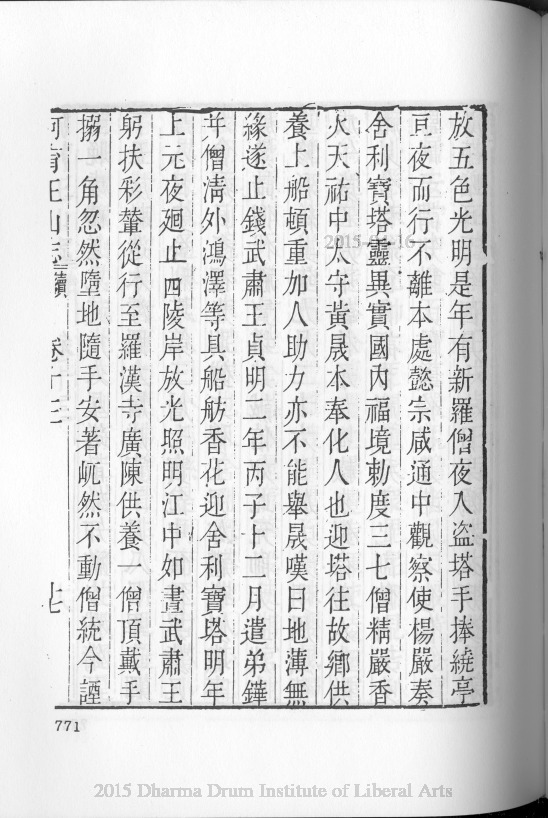 放五色光明是年有新羅僧夜入盜塔手捧繞亭
亘夜而行不離本處懿宗咸通中觀察使楊嚴奏
舍利寶塔靈異實國內福境勅度三七僧精嚴香
火天祐中太守黃晟本奉化人也迎塔往故鄉供
養上船頓重加人助力亦不能舉晟嘆曰地薄無
緣遂止錢武肅王貞明二年丙子十二月遣弟鏵
并僧清外鴻澤等具船舫香花迎舍利寶塔明年
上元夜廻止西陵岸放光照明江中如晝武肅王
躬扶彩輦從行至羅漢寺廣陳供養一僧頂戴手
搦一角忽然墮地隨手安著屼然不動僧統令諲
阿育王山志 續 卷十三 十七
771
2015 Dharma Drum Institute of Liberal Arts